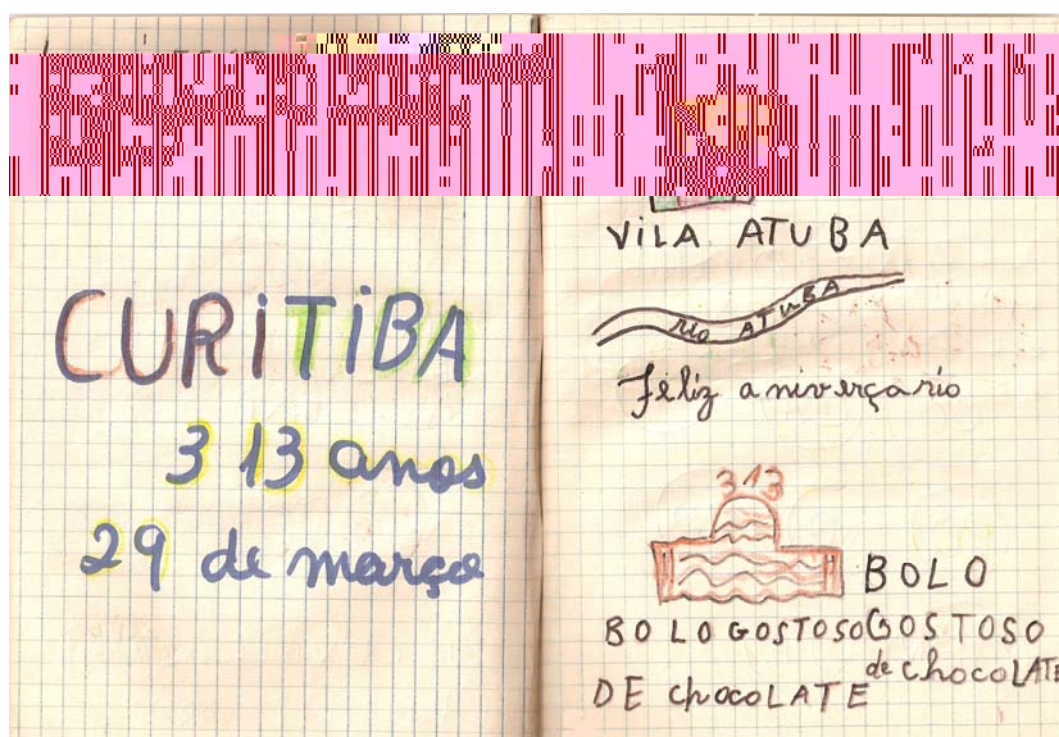 CURITIBA
313 anos
29 de março
VILA ATUBA
RIO ATUBA
Feliz aniverçario
313
BOLO
GOSTOSO
de chocoLATE
BOLO GOSTOSO
DE chocoLATE